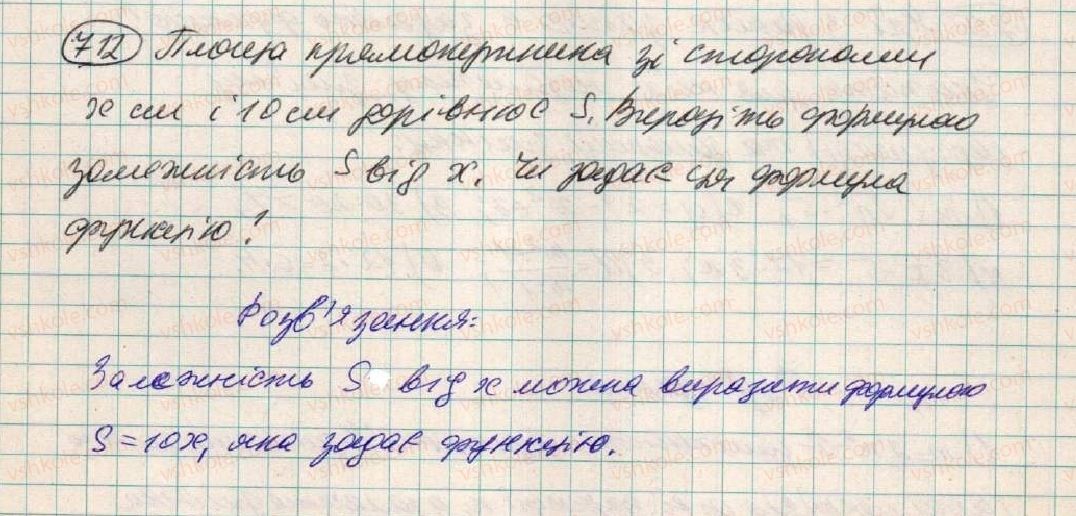 712 Площа прямокутника зі сторонами
x см і 10 см дорівнює S. Виразіть формулою
залежність S від x. Чи задає ця формула
функцію?
Розв'язання:
Залежність S від x можна виразити формулою
S = 10x, яка задає функцію.